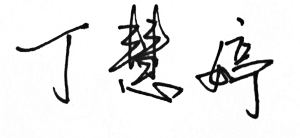 丁慧婷